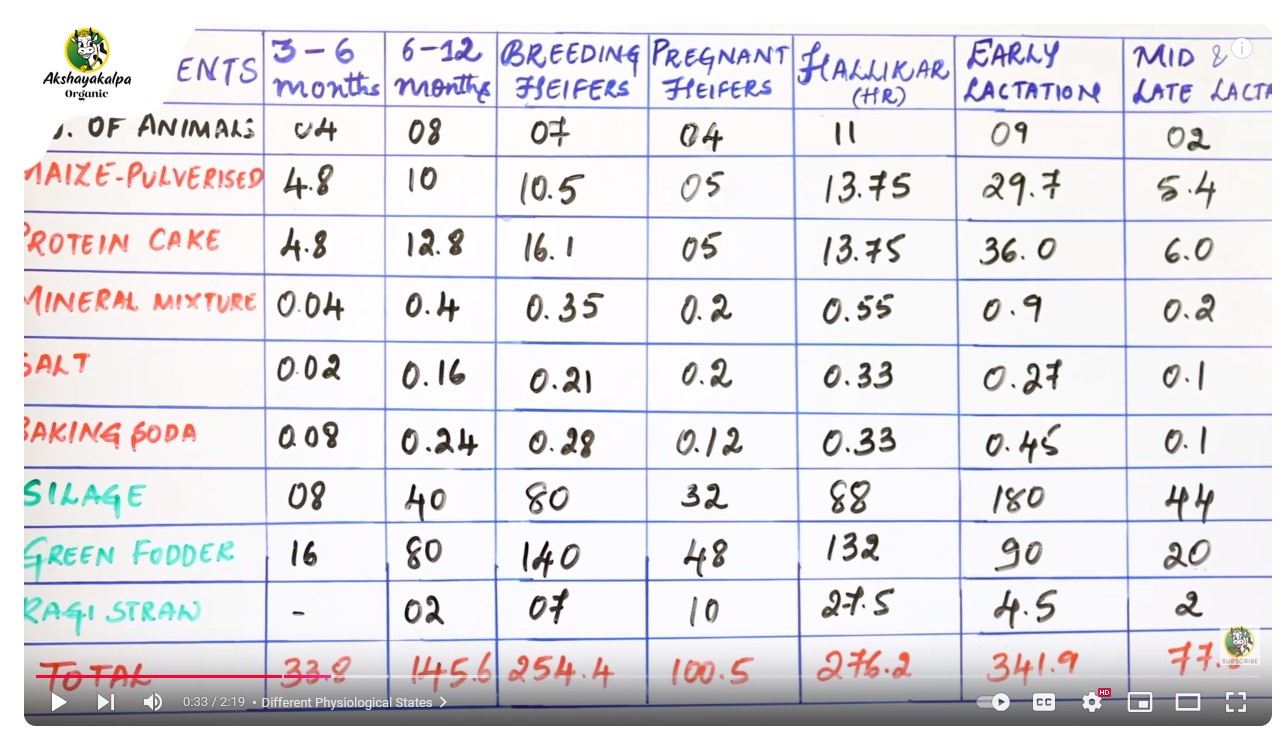 Akshayakalpa
Organic
ENTS 3-6 months 6-12 months BREEDING HEIFERS PREGNANT HEIFERS HALLIKAR (HR) EARLY LACTATION MID & LATE LACTA
. OF ANIMALS 04 08 07 04 11 09 02
MAIZE-PULVERISED 4.8 10 10.5 05 13.75 29.7 5.4
PROTEIN CAKE 4.8 12.8 16.1 05 13.75 36.0 6.0
MINERAL MIXTURE 0.04 0.4 0.35 0.2 0.55 0.9 0.2
SALT 0.02 0.16 0.21 0.2 0.33 0.27 0.1
BAKING SODA 0.08 0.24 0.28 0.12 0.33 0.45 0.1
SILAGE 08 40 80 32 88 180 44
GREEN FODDER 16 80 140 48 132 90 20
RAGI STRAW - 02 07 10 27.5 4.5 2
TOTAL 33.8 145.6 254.4 100.5 276.2 341.9 77.
SUBSCRIBE
0:33 / 2:19 • Different Physiological States
CC HD